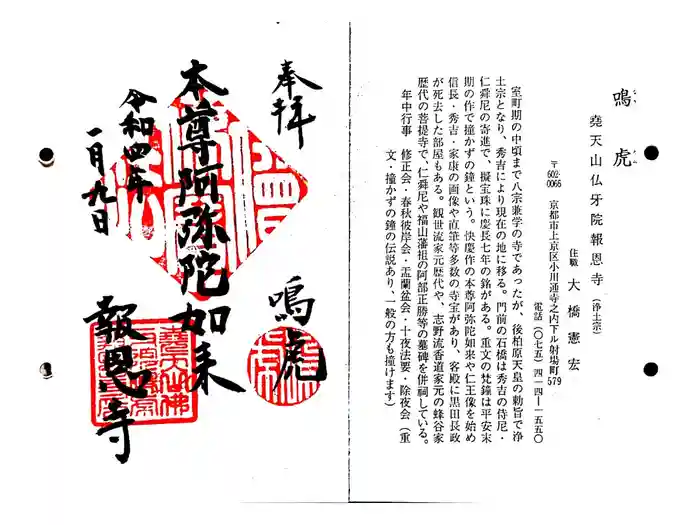 鳴虎
なき とら
堯天山仏牙院報恩寺（浄土宗）
住職 大橋憲宏
〒602-0066 京都市上京区小川通寺之内下ル射場町579
電話（〇七五）四一四ー一五五〇
室町期の中頃まで八宗兼学の寺であったが、後柏原天皇の勅旨で浄
土宗となり、秀吉により現在の地に移る。門前の石橋は秀吉の侍尼・
仁舜尼の寄進で、擬宝珠に慶長七年の銘がある。重文の梵鐘は平安末
期の作で撞かずの鐘という。快慶作の本尊阿弥陀如来や仁王像を始め
信長・秀吉・家康の画像や直筆等多数の寺宝があり、客殿に黒田長政
が死去した部屋もある。観世流家元歴代や、志野流香道家元の蜂谷家
歴代の菩提寺で、仁舜尼や福山藩祖の阿部正勝等の墓碑を併祠している。
年中行事 修正会・春秋彼岸会・盂蘭盆会・十夜法要・除夜会（重
文・撞かずの鐘の伝説あり、一般の方も撞けます）
奉拝
鳴虎
本尊阿弥陀如来
令和四年
一月九日
報恩寺